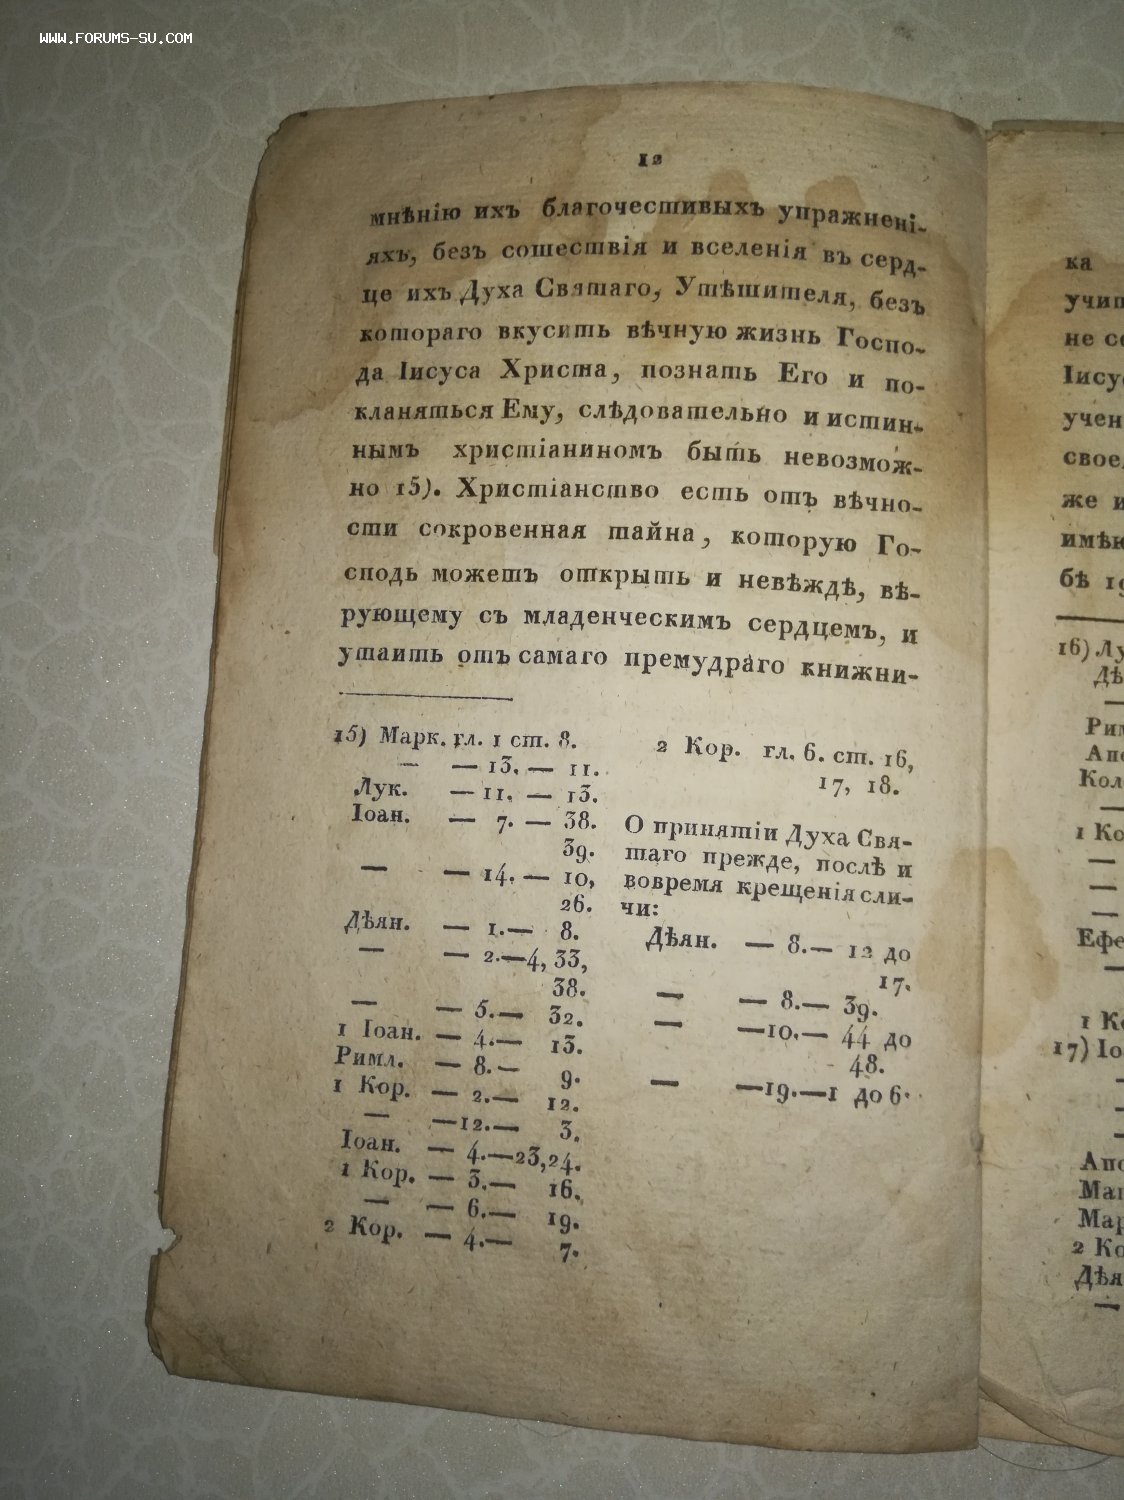 WWW.FORUMS-SU.COM
12
мнѣнію ихъ благочестивыхъ упражнені-
яхъ, безъ сошествія и вселенія въ серд-
це ихъ Духа Святаго, Утѣшителя, безъ
котораго вкусить вѣчную жизнь Госпо-
да Іисуса Христа, познать Его и по-
кланяться Ему, слѣдовательно и истин-
нымъ христіаниномъ быть невозмож-
но 15). Христіанство есть отъ вѣчно-
сти сокровенная тайна, которую Го-
сподь можетъ открыть и невѣждѣ, вѣ-
рующему съ младенческимъ сердцемъ, и
утаить отъ самаго премудраго книжни-
15) Марк. гл. 1 ст. 8.
— — 13. — 11.
Лук. — 11. — 13.
Іоан. — 7. — 38.
39.
— — 14. — 10,
26.
Дѣян. — 1.— 8.
— — 2.—4, 33,
38.
— — 5.— 32.
1 Іоан. — 4.— 13.
Римл. — 8.— 9.
1 Кор. — 2.— 12.
— —12.— 3.
Іоан. — 4.—23,24.
1 Кор. — 3.— 16.
— — 6.— 19.
2 Кор. — 4.— 7.
2 Кор. гл. 6. ст. 16,
17, 18.
О принятіи Духа Свя-
таго прежде, послѣ и
вовремя крещенія сли-
чи:
Дѣян. — 8.— 12 до
17.
— — 8.— 39.
— —10.— 44 до
48.
— —19.—1 до 6.
ка
учит
не
Іису
учен
свое
же и
имѣю
бѣ
16) Лу
Дѣ
—
Рим
Апо
Кол
—
1 Ко
—
—
—
Ефе
—
1 Ко
17) Іо
—
—
—
Апо
Мат
Мар
2 Ко
Дѣя
—